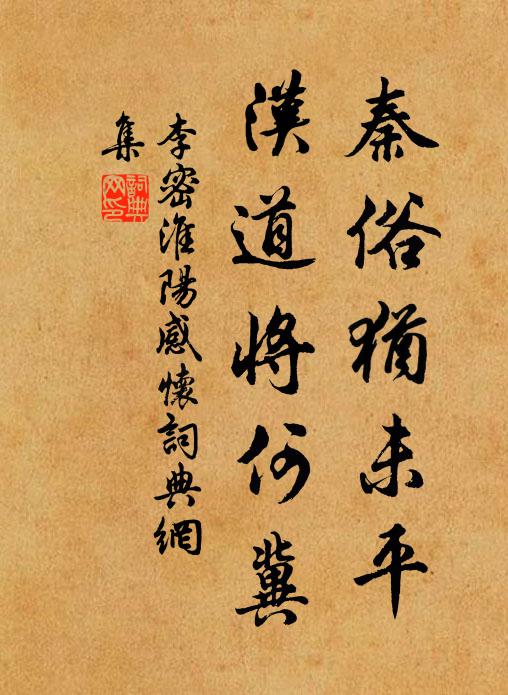 秦俗猶未平
漢道將何冀
李密淮陽感懷詞典網
集
詞典
網印